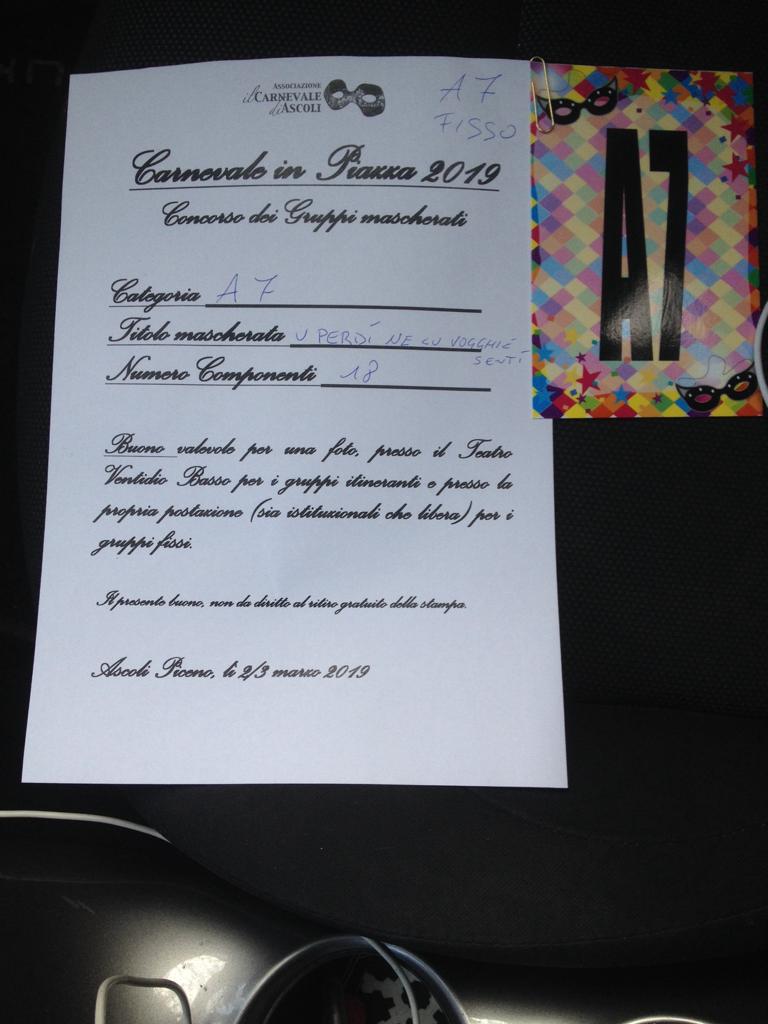 Associazione
il Carnevale
di Ascoli
A 7
FISSO
Carnevale in Piazza 2019
Concorso dei Gruppi mascherati
Categoria A 7
Titolo mascherata U PERDÍ NE CU VOGGHIE
SENTÍ
Numero Componenti 18
Buono valevole per una foto, presso il Teatro
Ventidio Basso per i gruppi itineranti e presso la
propria postazione (sia istituzionali che libera) per i
gruppi fissi.
Il presente buono, non da diritto al ritiro gratuito della stampa.
Ascoli Piceno, lì 2/3 marzo 2019
A7